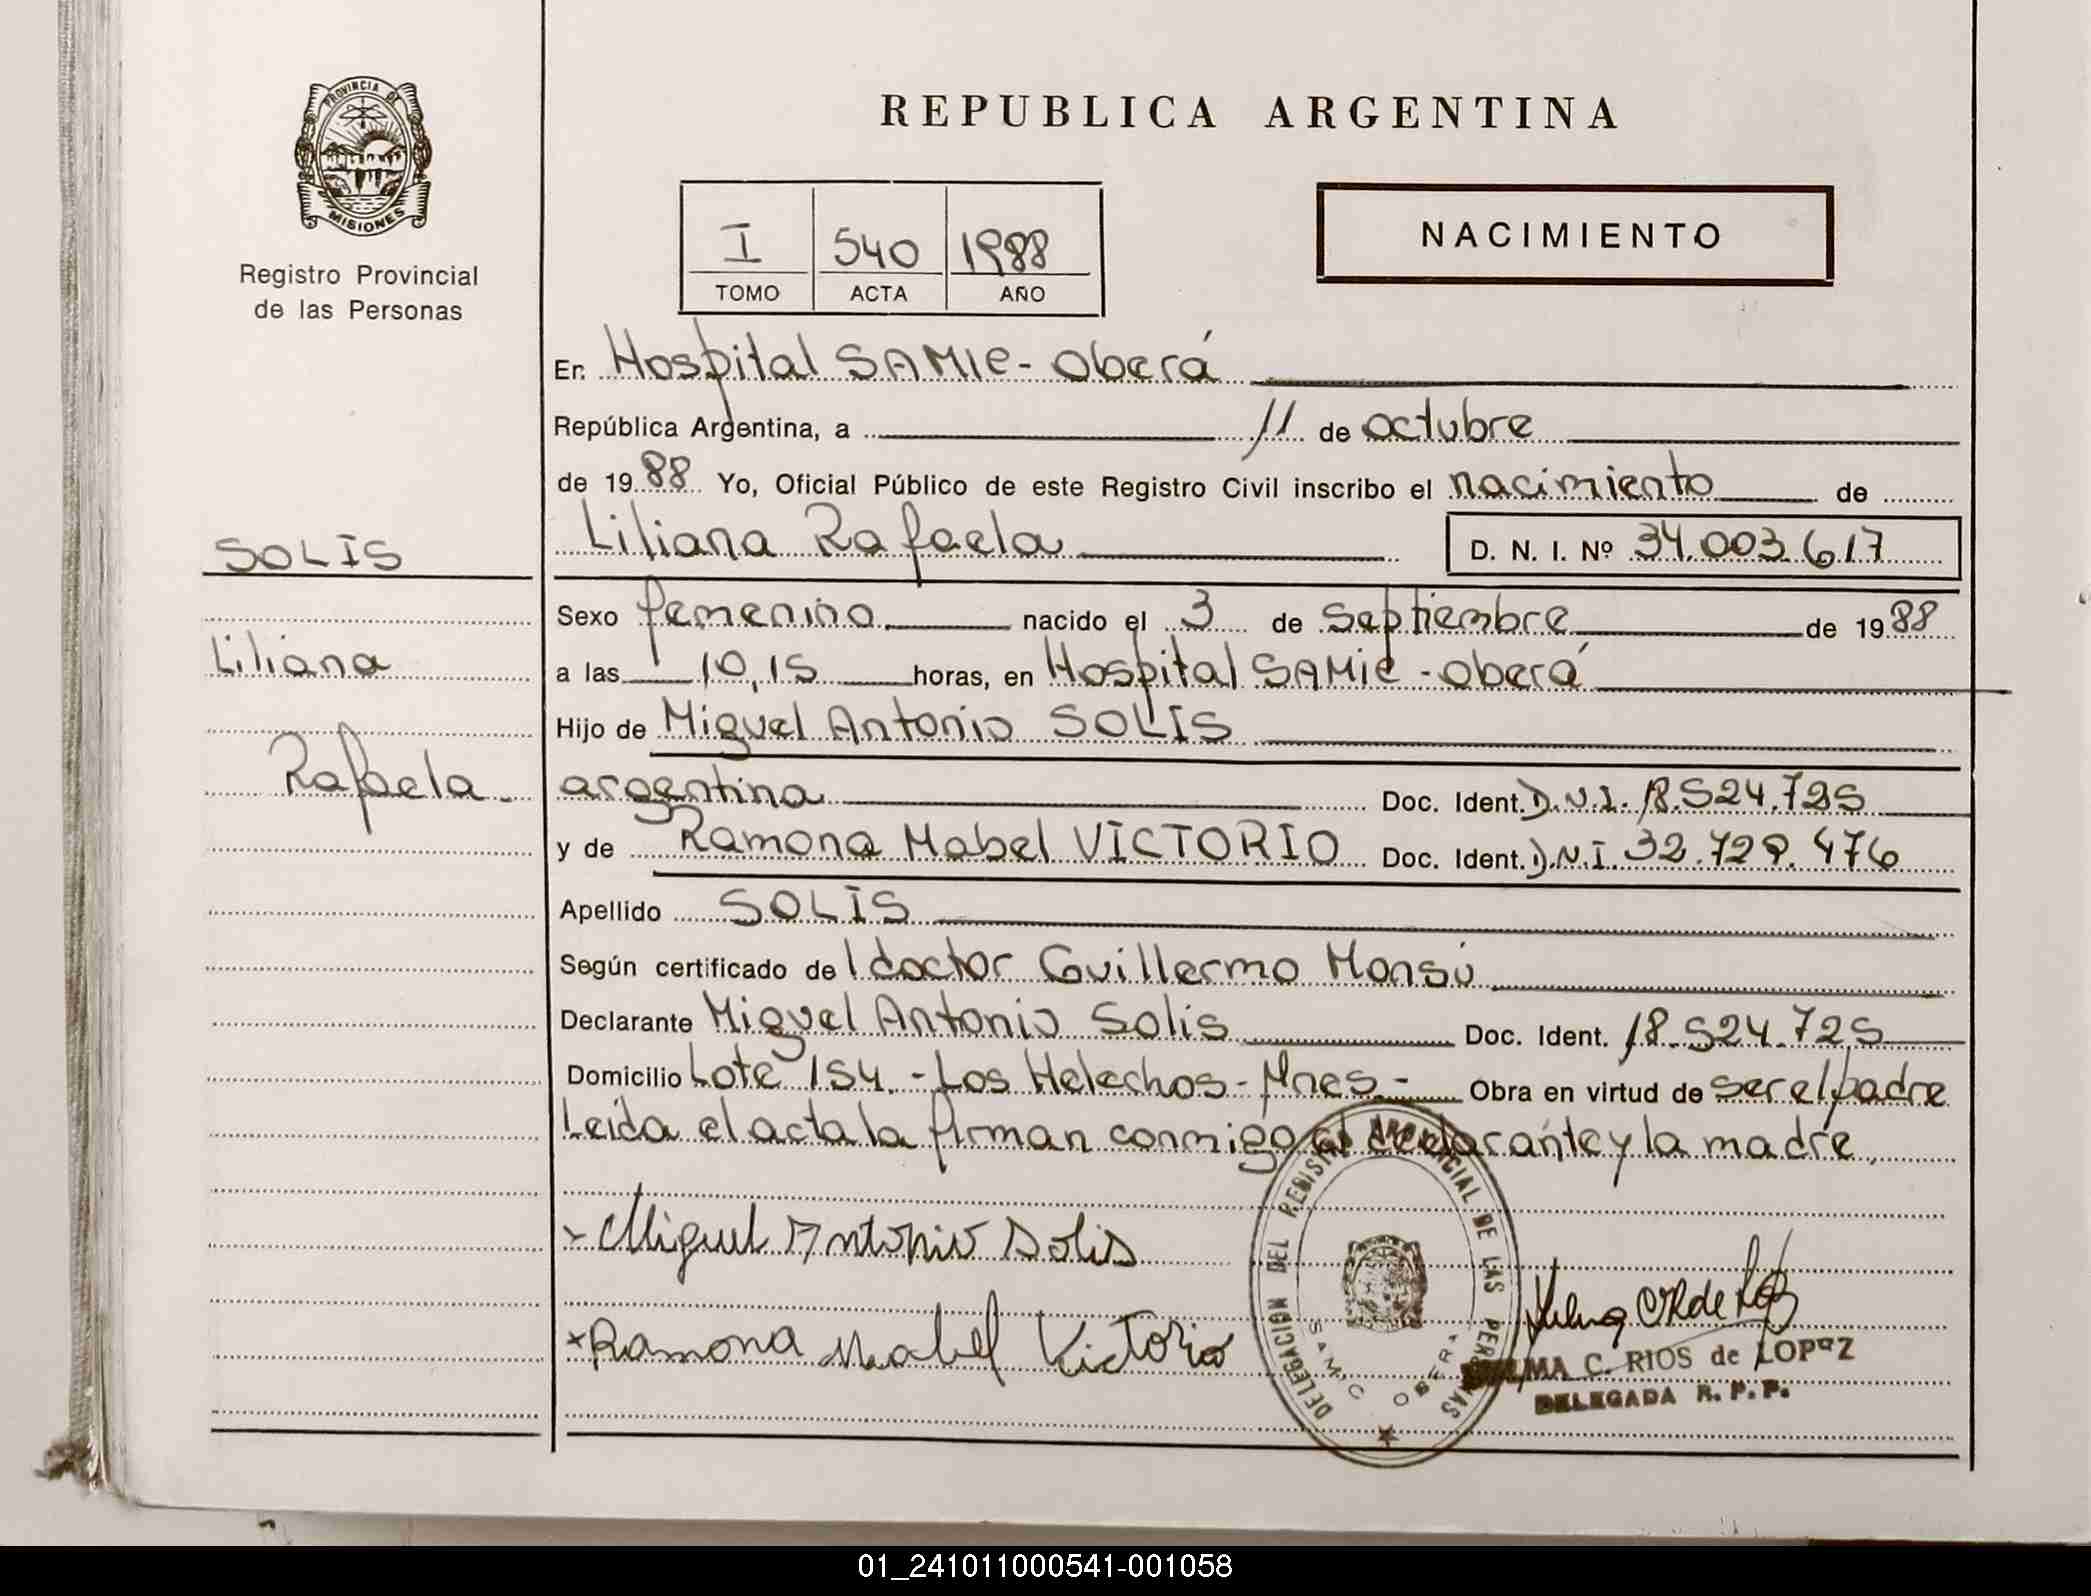 PROVINCIA DE
MISIONES
Registro Provincial
de las Personas
REPUBLICA ARGENTINA
I 540 1988
TOMO ACTA AÑO
NACIMIENTO
En Hospital SAMIC - Oberá
República Argentina, a 11 de octubre
de 1988 Yo, Oficial Público de este Registro Civil inscribo el nacimiento de
Liliana Rafaela D. N. I. Nº 34.003.617
SOLIS
Liliana
Rafaela.
Sexo femenino nacido el 3 de septiembre de 1988
a las 10,15 horas, en Hospital SAMIC - Oberá
Hijo de Miguel Antonio SOLIS
argentina Doc. Ident. D.N.I. 18.524.725
y de Ramona Mabel VICTORIO Doc. Ident. D.N.I 32.729.476
Apellido SOLIS
Según certificado del doctor Guillermo Monsú
Declarante Miguel Antonio Solis Doc. Ident. 18.524.725
Domicilio Lote 154 - Los Helechos - Mnes - Obra en virtud de ser el padre
Leida el acta la firman conmigo el declarante y la madre
Miguel Antonio Solis
x Ramona Mabel Victorio
DELEGACION DEL REGISTRO PROVINCIAL DE LAS PERSONAS
SAMIC OBERA
C. RIOS de LOPEZ
DELEGADA R. P. P.
01_241011000541-001058